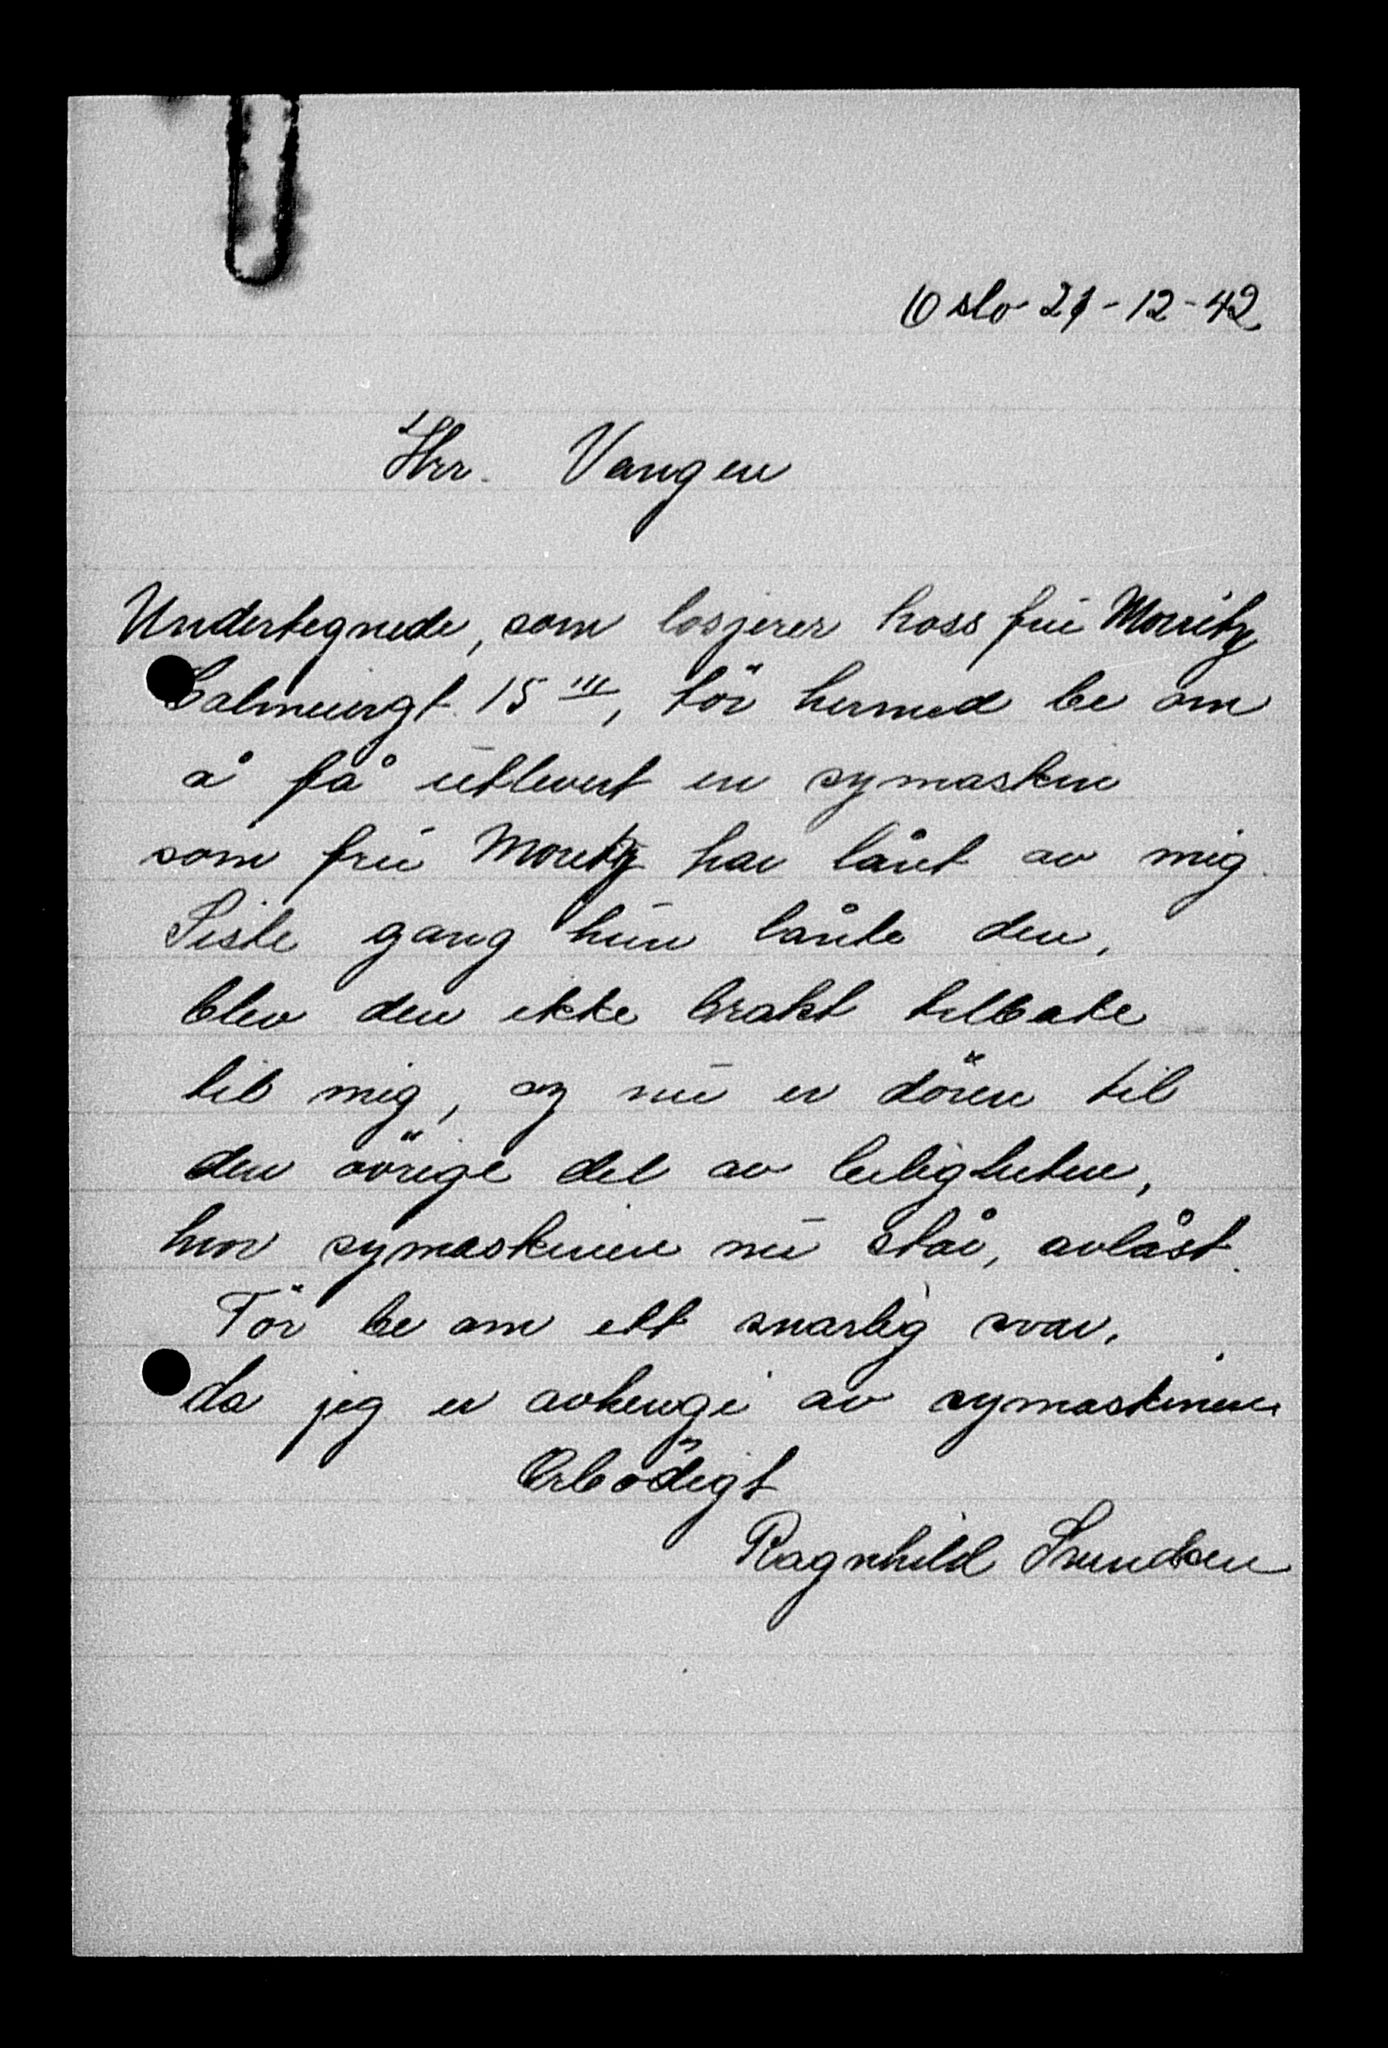 Oslo 21-12-42
Hrr. Vangen
Undertegnede, som losjerer hoss frü Moritz
Calmeiergt. 15 III, tör hermed be om
å få utlevert en symaskin
som frü Moritz har lånt av mig.
Siste gang hun lånte den,
blev den ikke brakt tilbake
til mig, og nu er dören til
den övrige del av leiligheten,
hvor symaskinen nu står, avlåst.
Tör be om ett snarlig svar,
da jeg er avhengi av symaskinen.
Erbödigt
Ragnhild Svendsen